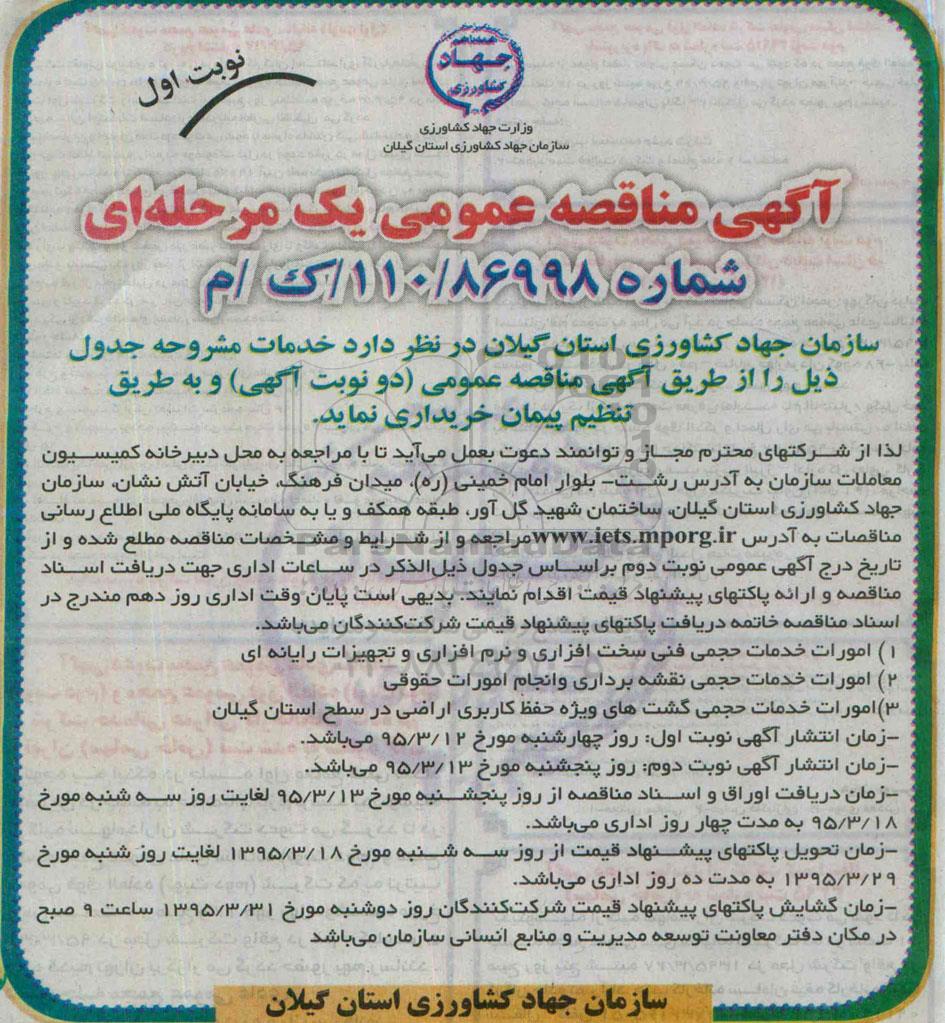 نوبت اول
همه با هم
جهاد
کشاورزی
وزارت جهاد کشاورزی
سازمان جهاد کشاورزی استان گیلان
آگهی مناقصه عمومی یک مرحله‌ای
شماره ۱۱۰/۸۶۹۹۸/ک /م
سازمان جهاد کشاورزی استان گیلان در نظر دارد خدمات مشروحه جدول
ذیل را از طریق آگهی مناقصه عمومی (دو نوبت آگهی) و به طریق
تنظیم پیمان خریداری نماید.
لذا از شرکتهای محترم مجاز و توانمند دعوت بعمل می‌آید تا با مراجعه به محل دبیرخانه کمیسیون
معاملات سازمان به آدرس رشت- بلوار امام خمینی (ره)، میدان فرهنگ، خیابان آتش نشان، سازمان
جهاد کشاورزی استان گیلان، ساختمان شهید گل آور، طبقه همکف و یا به سامانه پایگاه ملی اطلاع رسانی
مناقصات به آدرس www.iets.mporg.ir مراجعه و از شرایط و مشخصات مناقصه مطلع شده و از
تاریخ درج آگهی عمومی نوبت دوم براساس جدول ذیل‌الذکر در ساعات اداری جهت دریافت اسناد
مناقصه و ارائه پاکتهای پیشنهاد قیمت اقدام نمایند. بدیهی است پایان وقت اداری روز دهم مندرج در
اسناد مناقصه خاتمه دریافت پاکتهای پیشنهاد قیمت شرکت‌کنندگان می‌باشد.
۱) امورات خدمات حجمی فنی سخت افزاری و نرم افزاری و تجهیزات رایانه ای
۲) امورات خدمات حجمی نقشه برداری وانجام امورات حقوقی
۳)امورات خدمات حجمی گشت های ویژه حفظ کاربری اراضی در سطح استان گیلان
-زمان انتشار آگهی نوبت اول: روز چهارشنبه مورخ ۹۵/۳/۱۲ می‌باشد.
-زمان انتشار آگهی نوبت دوم: روز پنجشنبه مورخ ۹۵/۳/۱۳ می‌باشد.
-زمان دریافت اوراق و اسناد مناقصه از روز پنجشنبه مورخ ۹۵/۳/۱۳ لغایت روز سه شنبه مورخ
۹۵/۳/۱۸ به مدت چهار روز اداری می‌باشد.
-زمان تحویل پاکتهای پیشنهاد قیمت از روز سه شنبه مورخ ۱۳۹۵/۳/۱۸ لغایت روز شنبه مورخ
۱۳۹۵/۳/۲۹ به مدت ده روز اداری می‌باشد.
-زمان گشایش پاکتهای پیشنهاد قیمت شرکت‌کنندگان روز دوشنبه مورخ ۱۳۹۵/۳/۳۱ ساعت ۹ صبح
در مکان دفتر معاونت توسعه مدیریت و منابع انسانی سازمان می‌باشد
سازمان جهاد کشاورزی استان گیلان
ParsNamadData